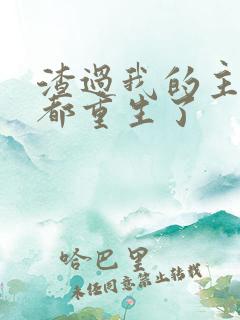 渣過我的主
都重生了
哈巴里
未經同意禁止轉載